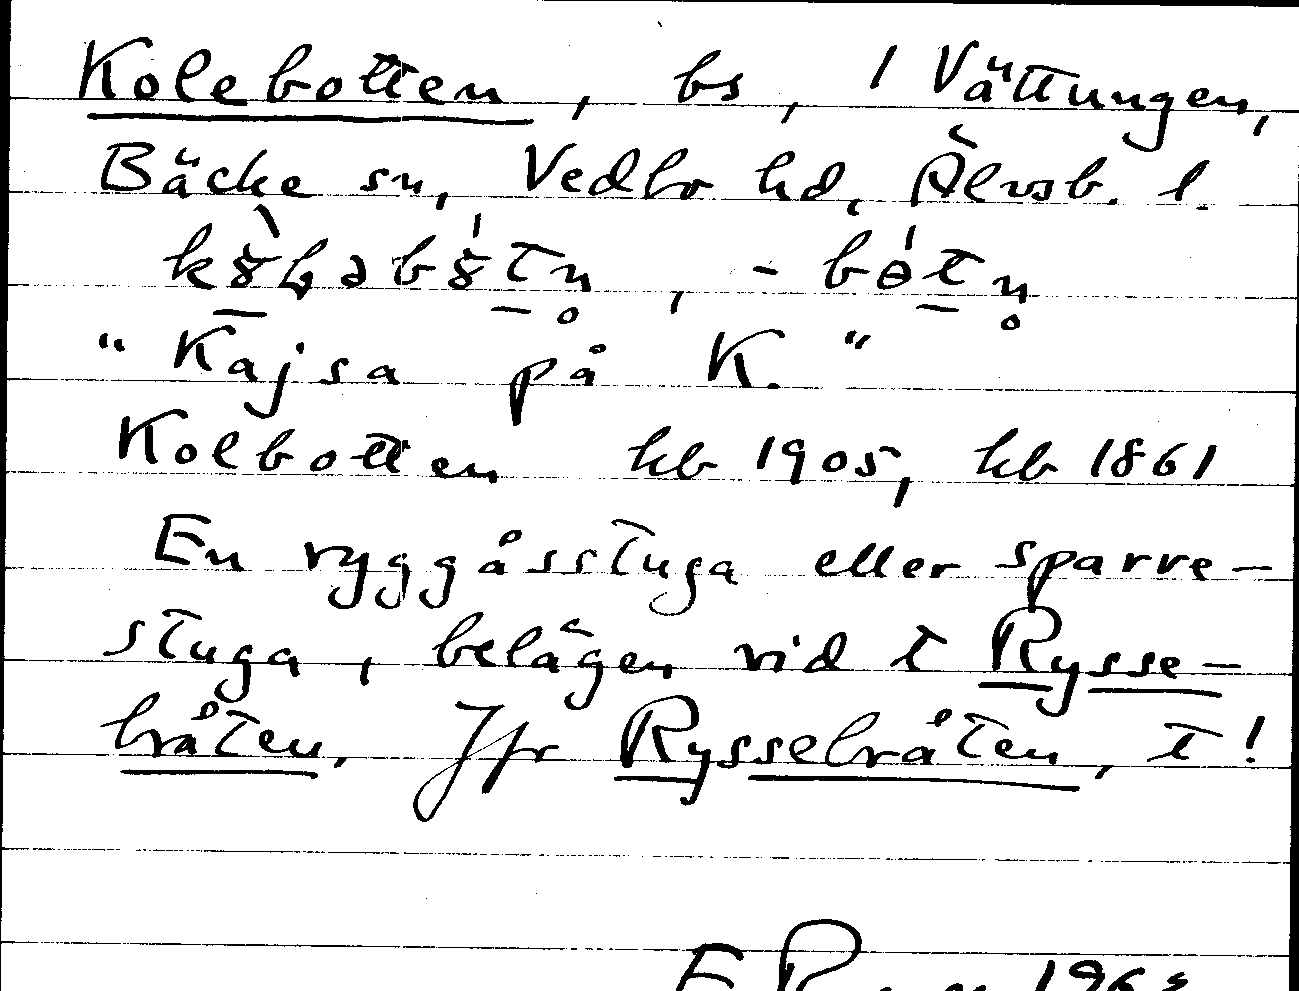 Kolebotten, bs, 1 Vättungen,
Bäcke sn, Vedbo hd, Älvsb. l.
"Kajsa på K."
Kolbotten hb 1905, hb 1861
En ryggåsstuga eller sparre-
stuga, belägen vid t Rysse-
bråten. Jfr Rysselbråten, t!